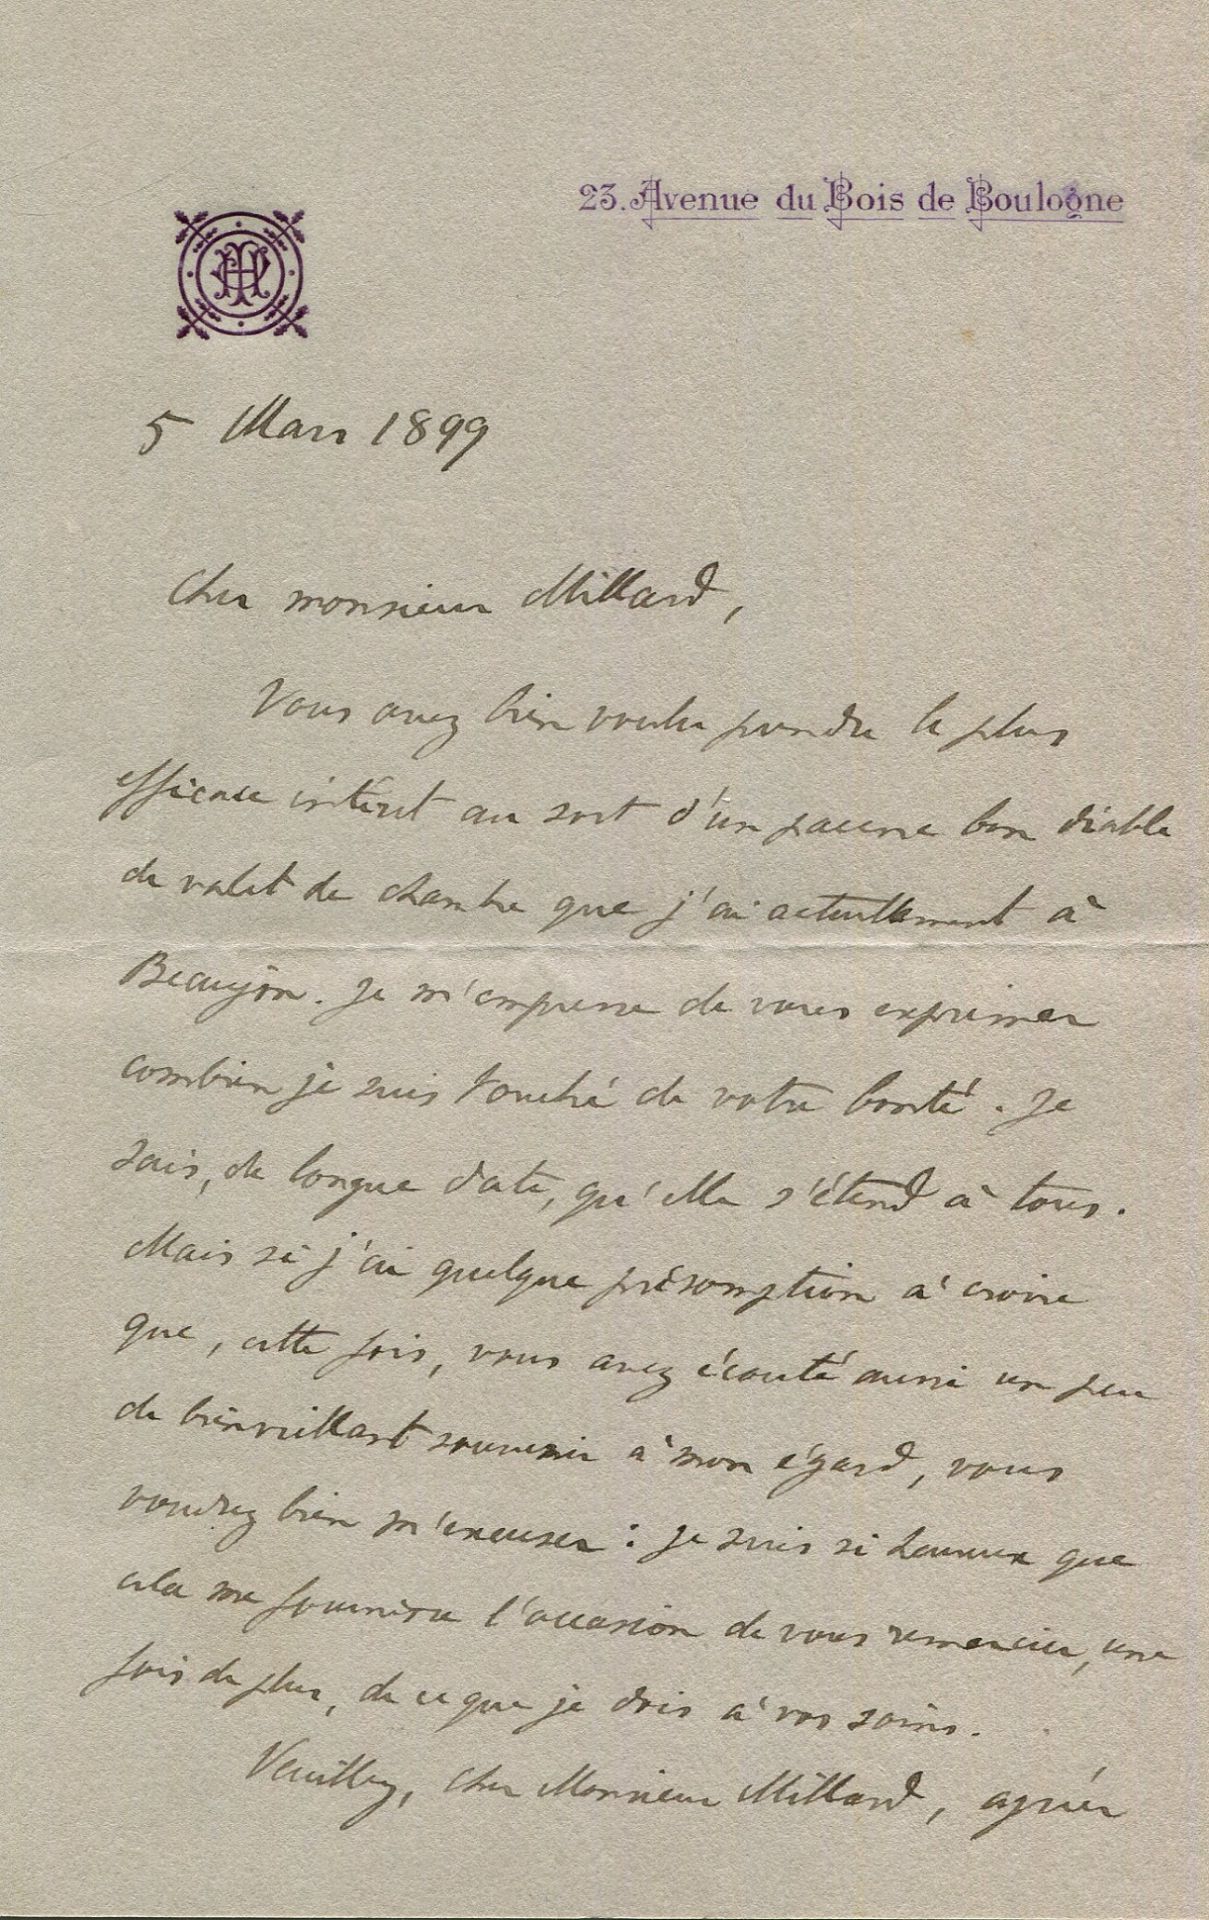 23. Avenue du Bois de Boulogne
5 Mars 1899
Cher monsieur Millard,
Vous avez bien voulu prendre le plus
efficace intérêt au sort d'un pauvre bon diable
de valet de chambre que j'ai actuellement à
Beaujon. Je m'empresse de vous exprimer
combien je suis touché de votre bonté. Je
sais, de longue date, qu'elle s'étend à tous.
Mais si j'ai quelque présomption à croire
que, cette fois, vous avez écouté aussi un peu
de bienveillant souvenir à mon égard, vous
voudrez bien m'excuser : je suis si heureux que
cela me fournisse l'occasion de vous remercier, une
fois de plus, de ce que je dois à vos soins.
Veuillez, cher Monsieur Millard, agréer